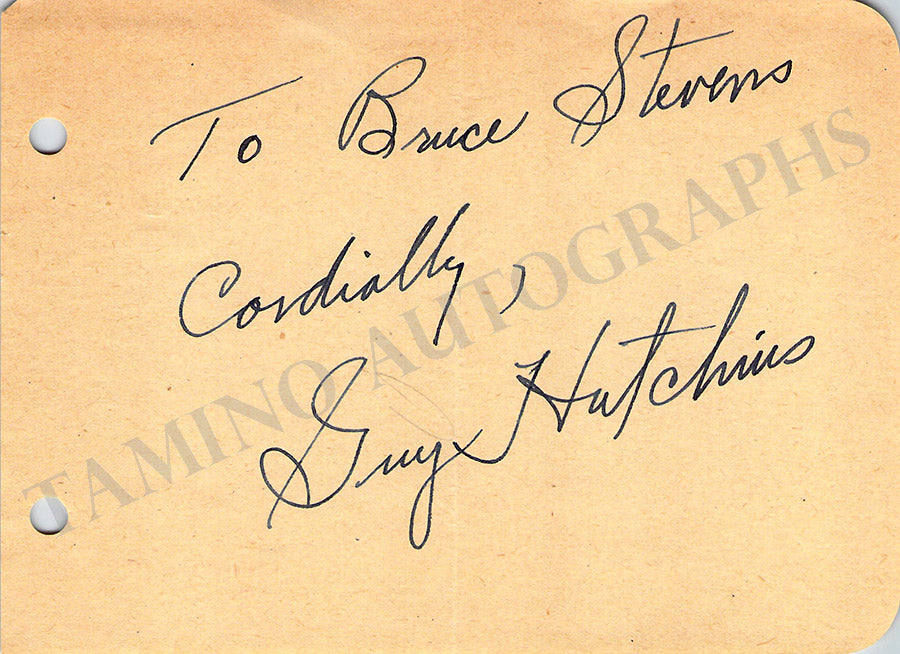 To Bruce Stevens
Cordially,
Guy Hutchins
TAMINO AUTOGRAPHS